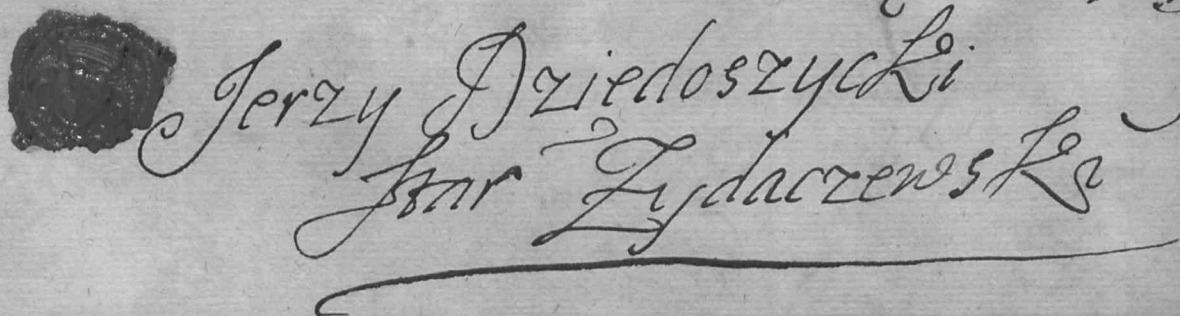 Jerzy Dziedoszycki
Star Zydaczewski